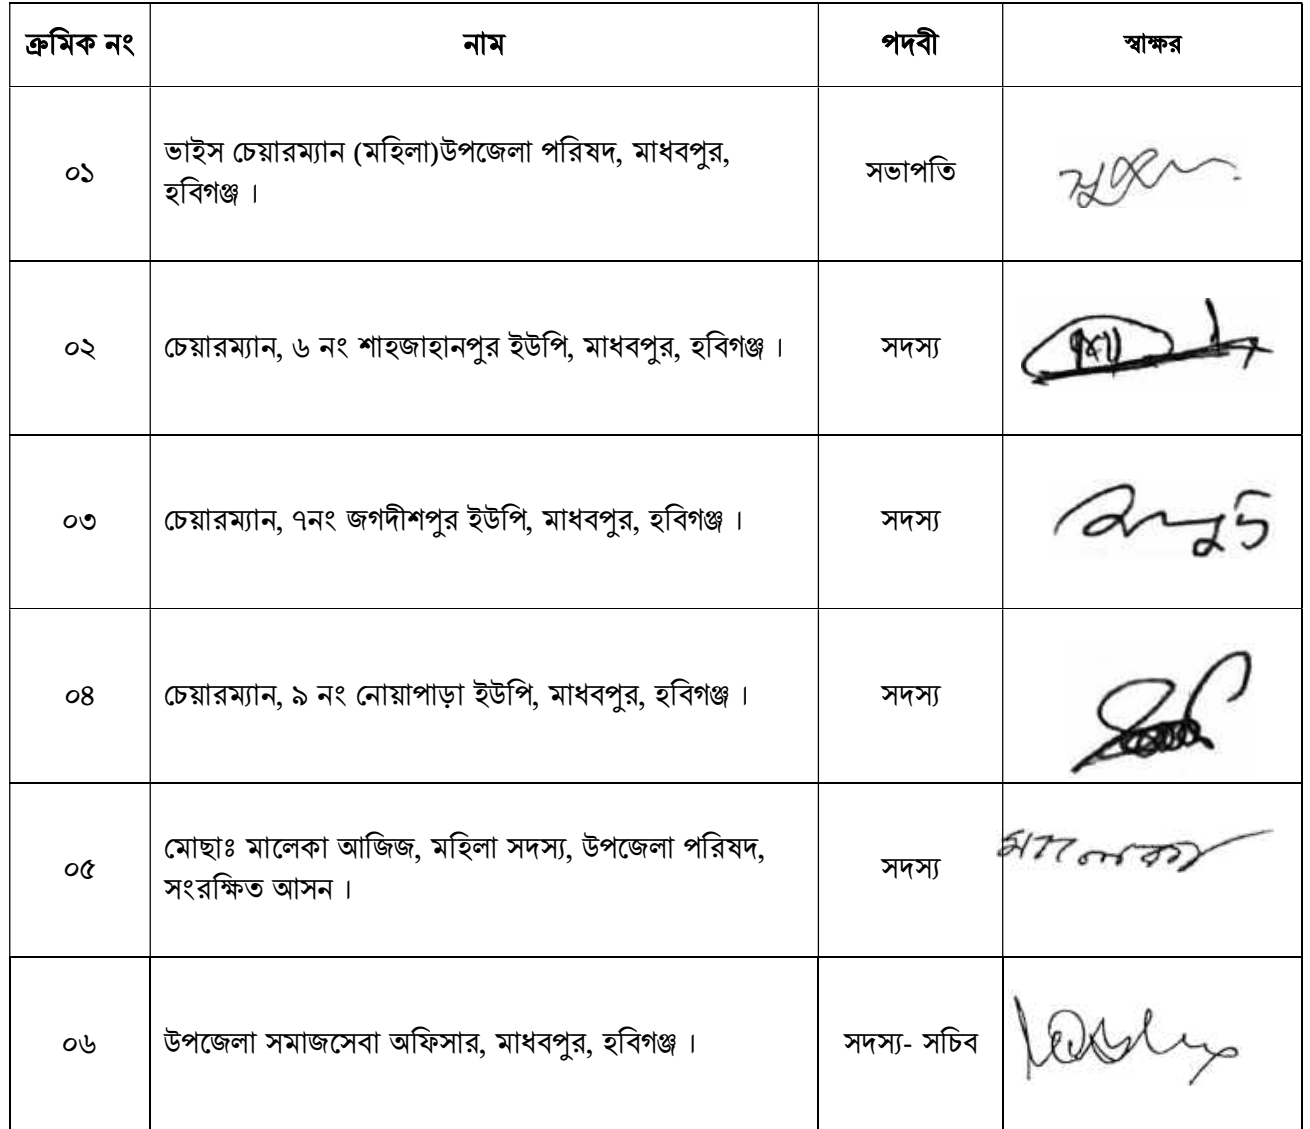 ক্রমিক নং নাম পদবী স্বাক্ষর
০১ ভাইস চেয়ারম্যান (মহিলা)উপজেলা পরিষদ, মাধবপুর, সভাপতি
হবিগঞ্জ।
০২ চেয়ারম্যান, ৬ নং শাহজাহানপুর ইউপি, মাধবপুর, হবিগঞ্জ। সদস্য
০৩ চেয়ারম্যান, ৭নং জগদীশপুর ইউপি, মাধবপুর, হবিগঞ্জ। সদস্য
০৪ চেয়ারম্যান, ৯ নং নোয়াপাড়া ইউপি, মাধবপুর, হবিগঞ্জ। সদস্য
০৫ মোছাঃ মালেকা আজিজ, মহিলা সদস্য, উপজেলা পরিষদ, সদস্য
সংরক্ষিত আসন।
০৬ উপজেলা সমাজসেবা অফিসার, মাধবপুর, হবিগঞ্জ। সদস্য- সচিব